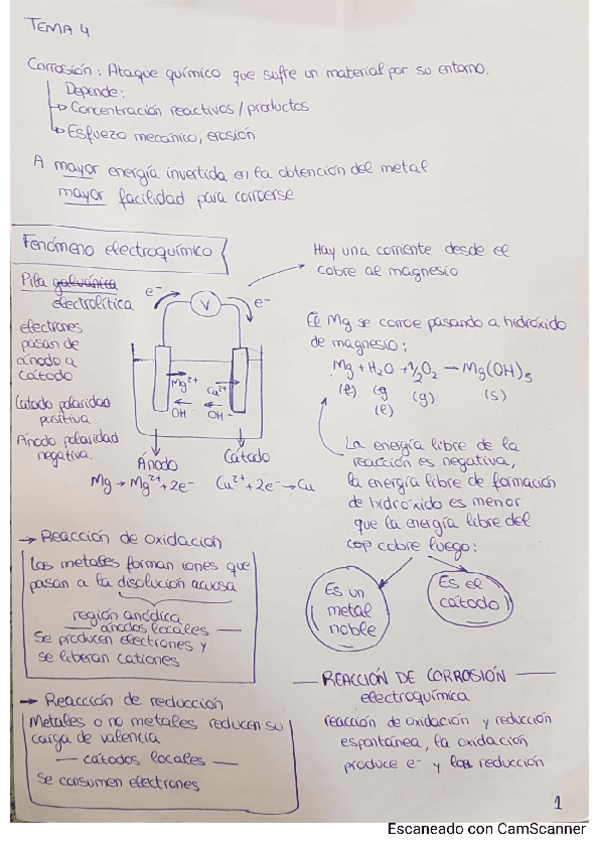 TEMA 4
Corrosión: Ataque químico que sufre un material por su entorno.
Depende:
→ Concentración reactivos / productos
→ Esfuerzo mecánico, erosión
A mayor energía invertida en la obtención del metal
mayor facilidad para corroerse
Fenómeno electroquímico
Pila galvánica
electrolítica
electrones
pasan de
ánodo a
cátodo
Cátodo polaridad
positiva.
Ánodo polaridad
negativa.
e⁻ V e⁻
Mg²⁺ Cu²⁺
OH⁻ OH⁻
Ánodo Cátodo
Mg → Mg²⁺ + 2e⁻ Cu²⁺ + 2e⁻ → Cu
Hay una corriente desde el
cobre al magnesio
El Mg se corroe pasando a hidróxido
de magnesio:
Mg + H₂O + ½O₂ → Mg(OH)₅
(l) (g (g) (s)
(l)
La energía libre de la
reacción es negativa,
la energía libre de formación
de hidróxido es menor
que la energía libre del
cop cobre luego:
Es un
metal
noble
Es el
cátodo
→ Reacción de oxidación
Los metales forman iones que
pasan a la disolución acuosa
región anódica
— ánodos locales —
Se producen electrones y
se liberan cationes
→ Reacción de reducción
Metales o no metales reducen su
carga de valencia
— cátodos locales —
Se consumen electrones
— REACCIÓN DE CORROSIÓN —
electroquímica
reacción de oxidación y reducción
espontánea, la oxidación
produce e⁻ y la reducción
1
Escaneado con CamScanner